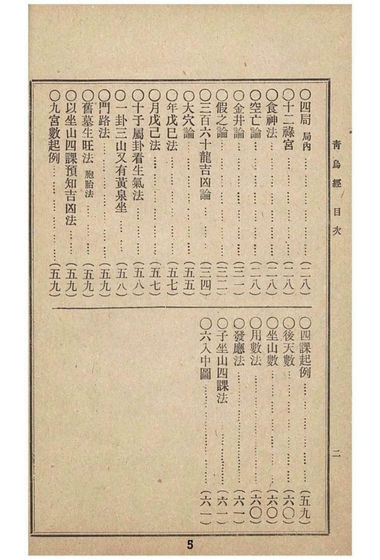 青烏經 目次
二
○四局 局內……(二八)
○十二祿宮……(二八)
○食神法……(二八)
○空亡論……(二八)
○金井論……(三一)
○假之論……(三二)
○三百六十龍吉凶論……(三四)
○大穴論……(五五)
○年戊巳法……(五七)
○月戊己法……(五七)
○十子屬卦看生氣法……(五八)
○一卦三山又有黃泉坐……(五八)
○門路法……(五九)
○舊墓生旺法 胞胎法……(五九)
○以坐山四課預知吉凶法……(五九)
○九宮數起例……(五九)
○四課起例……(五九)
○後天數……(六〇)
○坐山數……(六〇)
○用數法……(六〇)
○發應法……(六一)
○子坐山四課法……(六一)
○六入中圖……(六一)
5